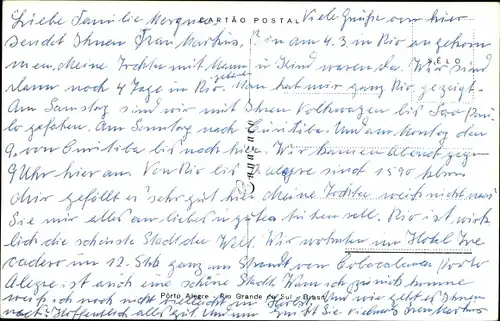 CARTÃO POSTAL
Liebe Familie Viele Grüße von hier
sendet Ihnen Frau Markus, bin am 4.3 in Rio angekom
men, meine Tochter mit Mann u Kind waren da. Wir sind
SELO
dann noch 4 Tage in Rio. Man hat mir ganz Rio gezeigt.
Am Samstag sind wir mit Ihren Volkwagen bis Sao Pau
lo gefahren. Am Sonntag nach Curitiba. Und am Montag den
9. von Curitiba bis nach hier. Wir kamen Abend gegen
9 Uhr hier an. Von Rio bis P. Alegre sind 1590 klm
Mir gefällt es sehr gut hier Meine Tochter weiß nicht was
Sie mir alles am lieber gutes tun soll. Rio ist wirk
lich die schönste Stadt der Welt. Wir wohnten im Hotel Tro
cadero im 12. Stck ganz am Strandt von Cobacabana Porto
Alegre ist auch eine schöne Stadt. Wann ich zurück komme
Porto Alegre - Rio Grande do Sul - Brasil
weiß ich noch nicht vielleicht im Herbst. Und wie geht es Ihnen
noch? Hoffentlich alles gut Und nun grüßt Sie vielmals Frau Markus